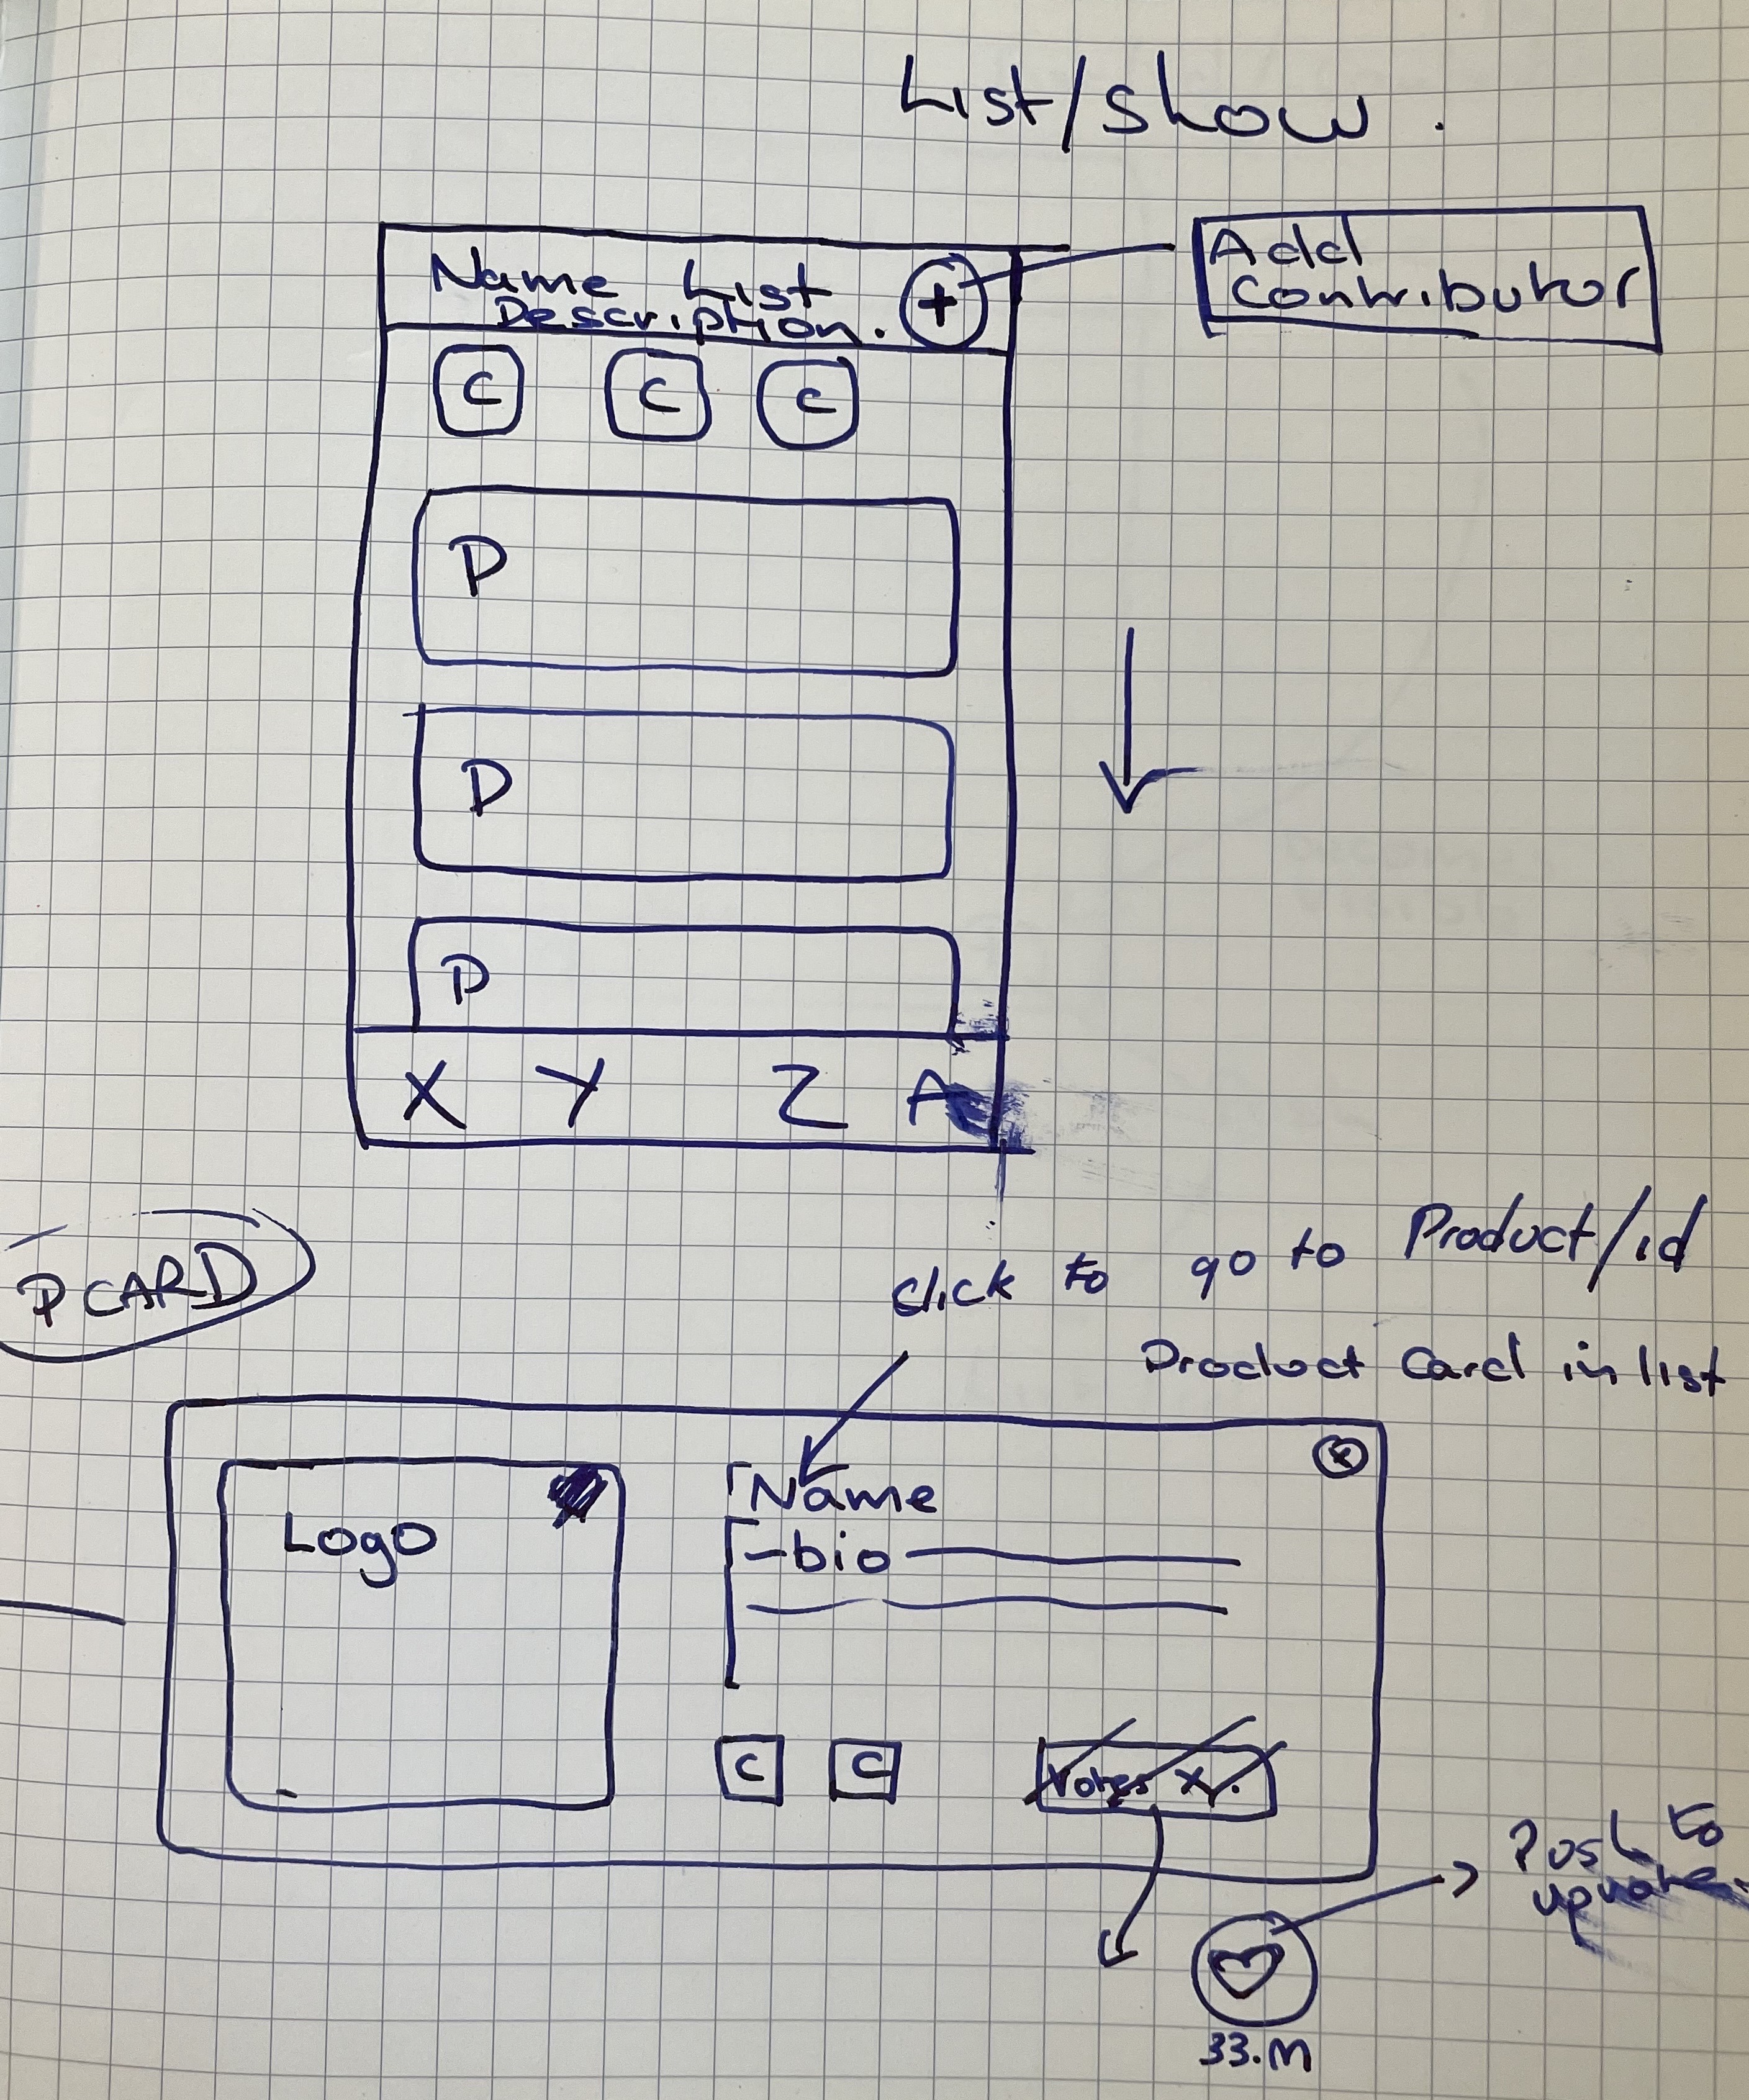 List/show.
Name List
Description.
+
Add
Contributor
C C C
P
P
P
X Y Z A
PCARD
click to go to Product/id
Product Card in list
Logo
Name
x
-bio
C C
Votes x.
Push to
33.M